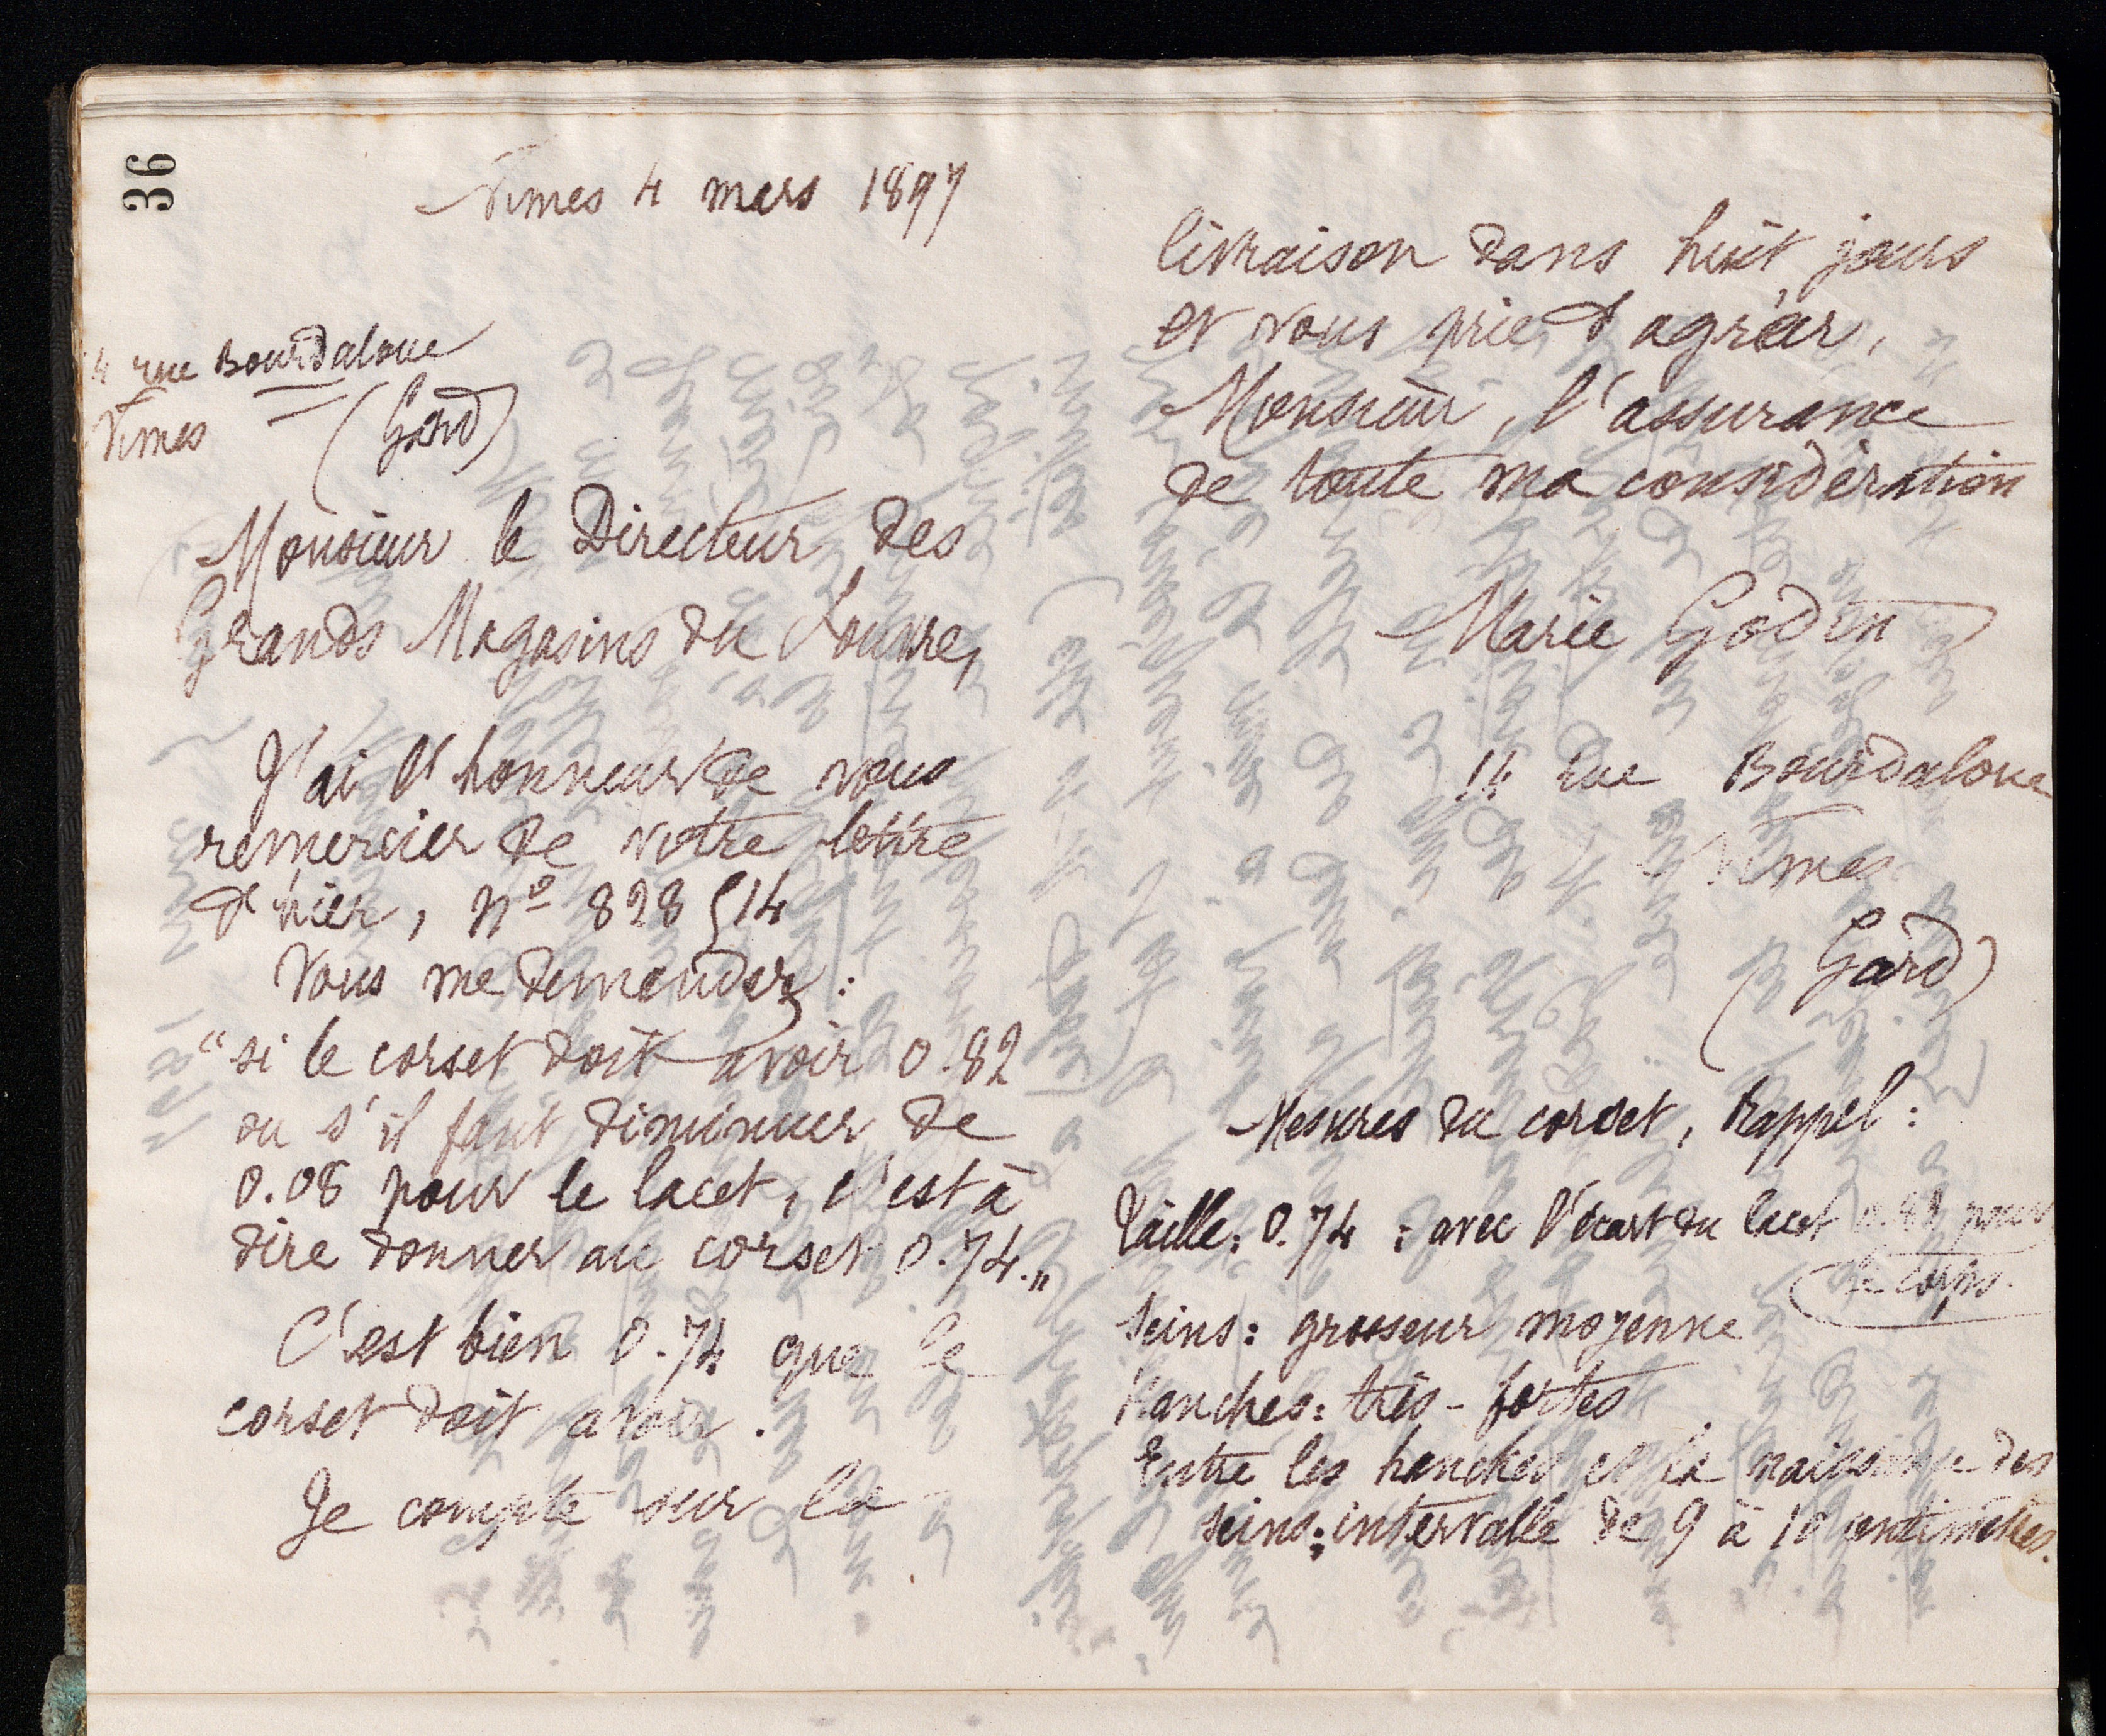 36
Nimes 4 mars 1897
14 rue Bourdaloue
Nimes (Gard)
Monsieur le Directeur des
Grands Magasins du Louvre,
J'ai l'honneur de vous
remercier de votre lettre
d'hier, Nº 828 § 14
Vous me demandez :
"si le corset doit avoir 0.82
ou s'il faut diminuer de
0.08 pour le lacet, c'est à
dire donner au corset 0.74."
C'est bien 0.74 que le
corset doit avoir.
Je compte sur la
livraison dans huit jours
et vous prie d'agréer,
Monsieur, l'assurance
de toute ma considération
Marie Godin
14 Rue Bourdaloue
Nimes
(Gard)
Mesures du corset, Rappel :
Taille : 0.74 : avec l'écart du lacet 0.82 pour
le corps.
Seins : grosseur moyenne
Hanches : très-fortes
Entre les hanches et la naissance des
seins : intervalle de 9 à 10 centimètres.